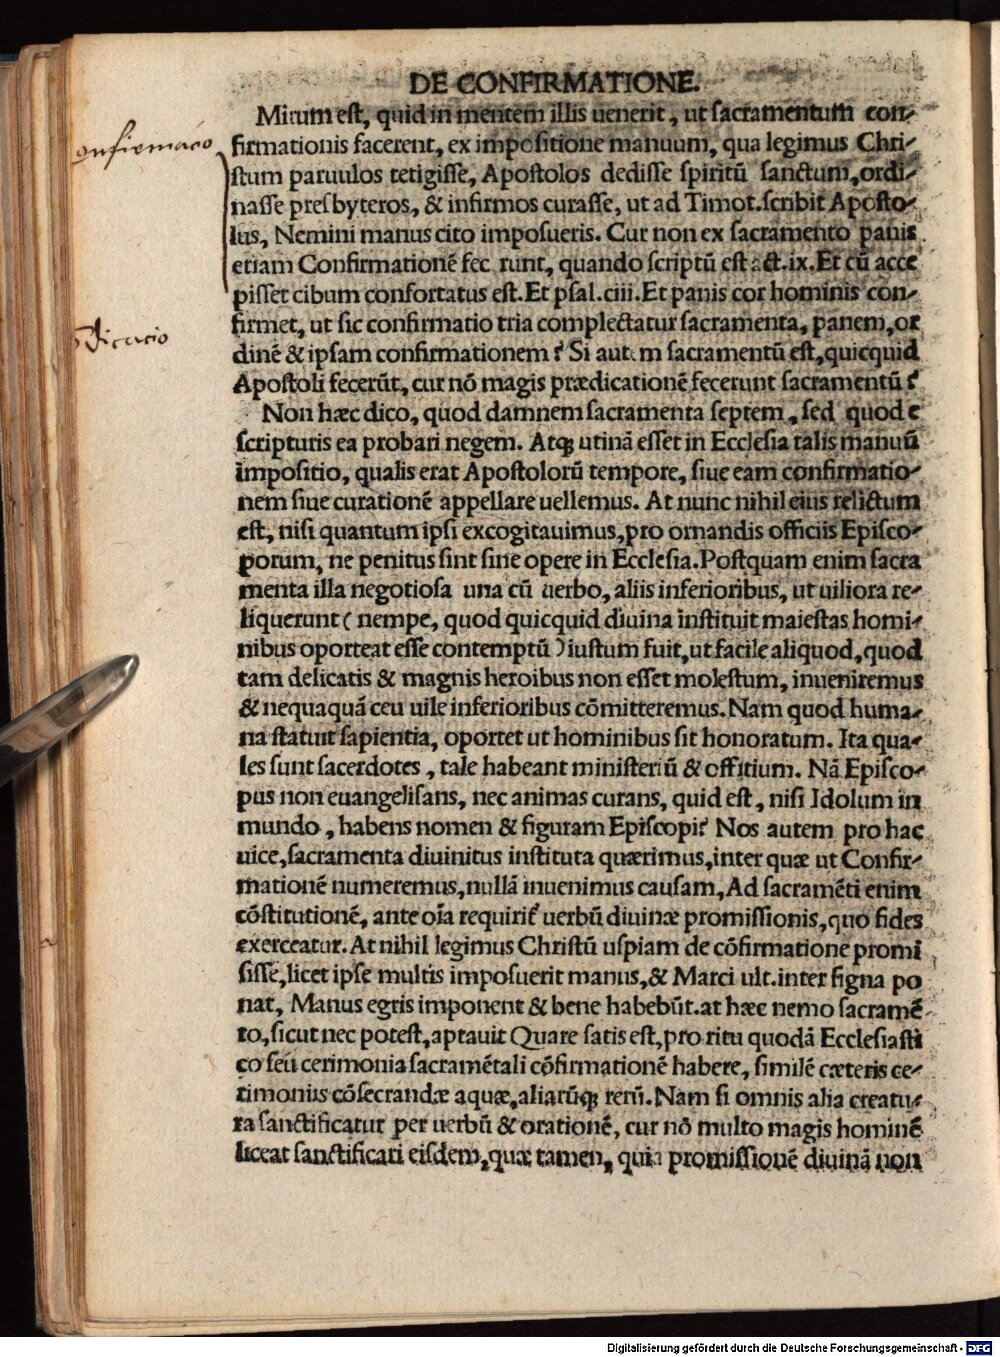 DE CONFIRMATIONE.
Mirum est, quid in mentem illis uenerit, ut sacramentum con-
firmationis facerent, ex impositione manuum, qua legimus Chri-
stum paruulos tetigisse, Apostolos dedisse spiritū sanctum, ordi-
nasse presbyteros, & infirmos curasse, ut ad Timot. scribit Aposto-
lus, Nemini manus cito imposueris. Cur non ex sacramento panis
etiam Confirmationē fec runt, quando scriptū est act. ix. Et cū acce
pisset cibum confortatus est. Et psal. ciii. Et panis cor hominis con-
firmet, ut sic confirmatio tria complectatur sacramenta, panem, or
dinē & ipsam confirmationem? Si autem sacramentū est, quicquid
Apostoli fecerūt, cur nō magis prædicationē fecerunt sacramentū?
Non hæc dico, quod damnem sacramenta septem, sed quod e
scripturis ea probari negem. Atq; utinā esset in Ecclesia talis manuū
impositio, qualis erat Apostolorū tempore, siue eam confirmatio-
nem siue curationē appellare uellemus. At nunc nihil eius relictum
est, nisi quantum ipsi excogitauimus, pro ornandis officiis Episco-
porum, ne penitus sint sine opere in Ecclesia. Postquam enim sacra
menta illa negotiosa una cū uerbo, aliis inferioribus, ut uiliora re-
liquerunt (nempe, quod quicquid diuina instituit maiestas homi-
nibus oporteat esse contemptū) iustum fuit, ut facile aliquod, quod
tam delicatis & magnis heroibus non esset molestum, inueniremus
& nequaquā ceu uile inferioribus cōmitteremus. Nam quod huma-
na statuit sapientia, oportet ut hominibus sit honoratum. Ita qua-
les sunt sacerdotes, tale habeant ministeriū & offitium. Nā Episco-
pus non euangelisans, nec animas curans, quid est, nisi Idolum in
mundo, habens nomen & figuram Episcopi? Nos autem pro hac
uice, sacramenta diuinitus instituta quærimus, inter quæ ut Confir-
mationē numeremus, nullā inuenimus causam, Ad sacramēti enim
cōstitutionē, ante oīa requirit̃ uerbū diuinæ promissionis, quo fides
exerceatur. At nihil legimus Christū uspiam de cōfirmatione promi
sisse, licet ipse multis imposuerit manus, & Marci ult. inter signa po
nat, Manus egris imponent & bene habebūt. at hæc nemo sacramē-
to, sicut nec potest, aptauit Quare satis est, pro ritu quodā Ecclesiasti
co seu cerimonia sacramētali cōfirmationē habere, similē cæteris ce-
rimoniis cōsecrandæ aquæ, aliarūq; rerū. Nam si omnis alia creatu-
ra sanctificatur per uerbū & orationē, cur nō multo magis hominē
liceat sanctificari eisdem, quæ tamen, quia promissionē diuinā non
onfirmacō
dicacio
Digitalisierung gefördert durch die Deutsche Forschungsgemeinschaft - DFG